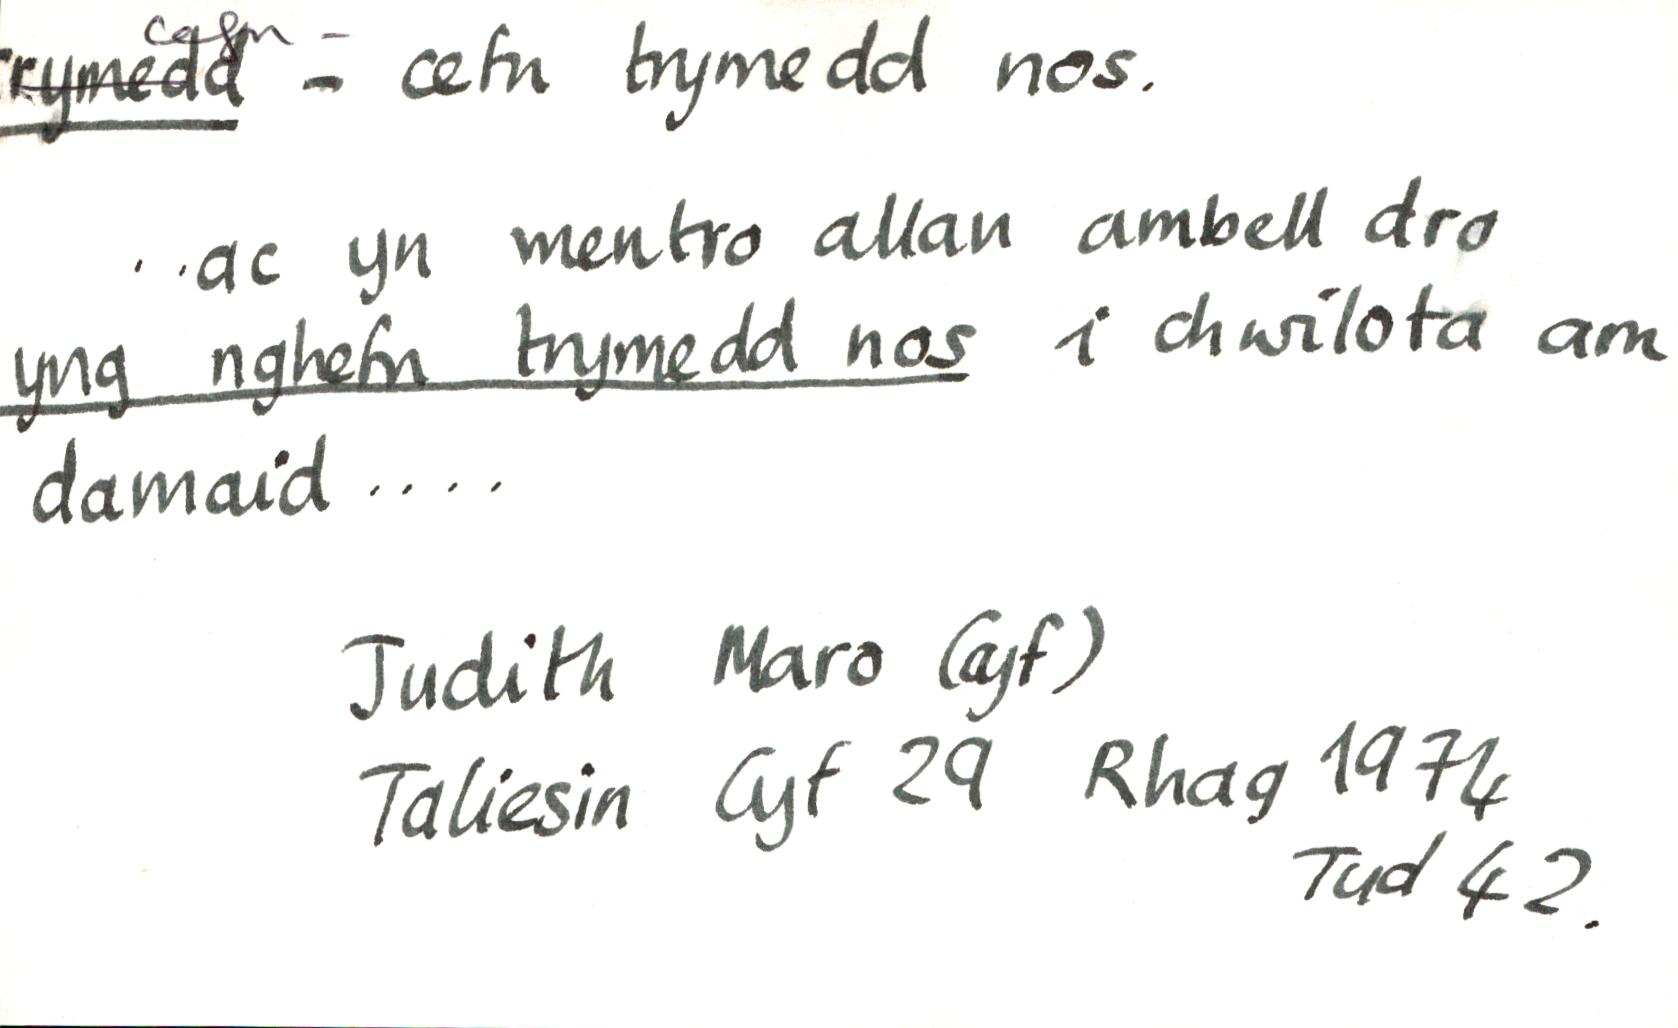 cefn -
trymedd - cefn trymedd nos.
...ac yn mentro allan ambell dro
yng nghefn trymedd nos i chwilota am
damaid ....
Judith Maro (cyf)
Taliesin Cyf 29 Rhag 1974
Tud 42.